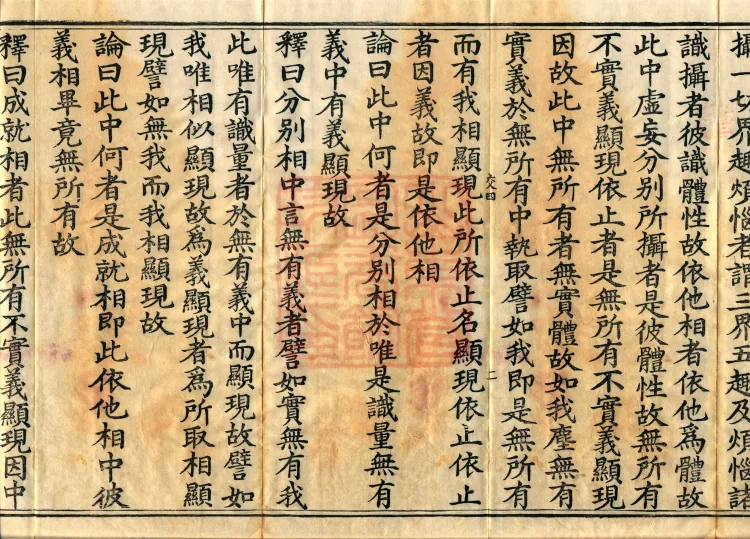 攝一切界趣煩惱者謂三界五趣及煩惱諸
識攝者彼識體性故依他相者依他爲體故
此中虛妄分別所攝者是彼體性故無所有
不實義顯現依止者是無所有不實義顯現
因故此中無所有者無實體故如我塵無有
實義於無所有中執取譬如我即是無所有
而有我相顯現此所依止名顯現依止依止
者因義故即是依他相
論曰此中何者是分別相於唯是識量無有
義中有義顯現故
釋曰分別相中言無有義者譬如實無有我
此唯有識量者於無有義中而顯現故譬如
我唯相似顯現故爲義顯現者爲所取相顯
現譬如無我而我相顯現故
論曰此中何者是成就相即此依他相中彼
義相畢竟無所有故
釋曰成就相者此無所有不實義顯現因中
交四
二